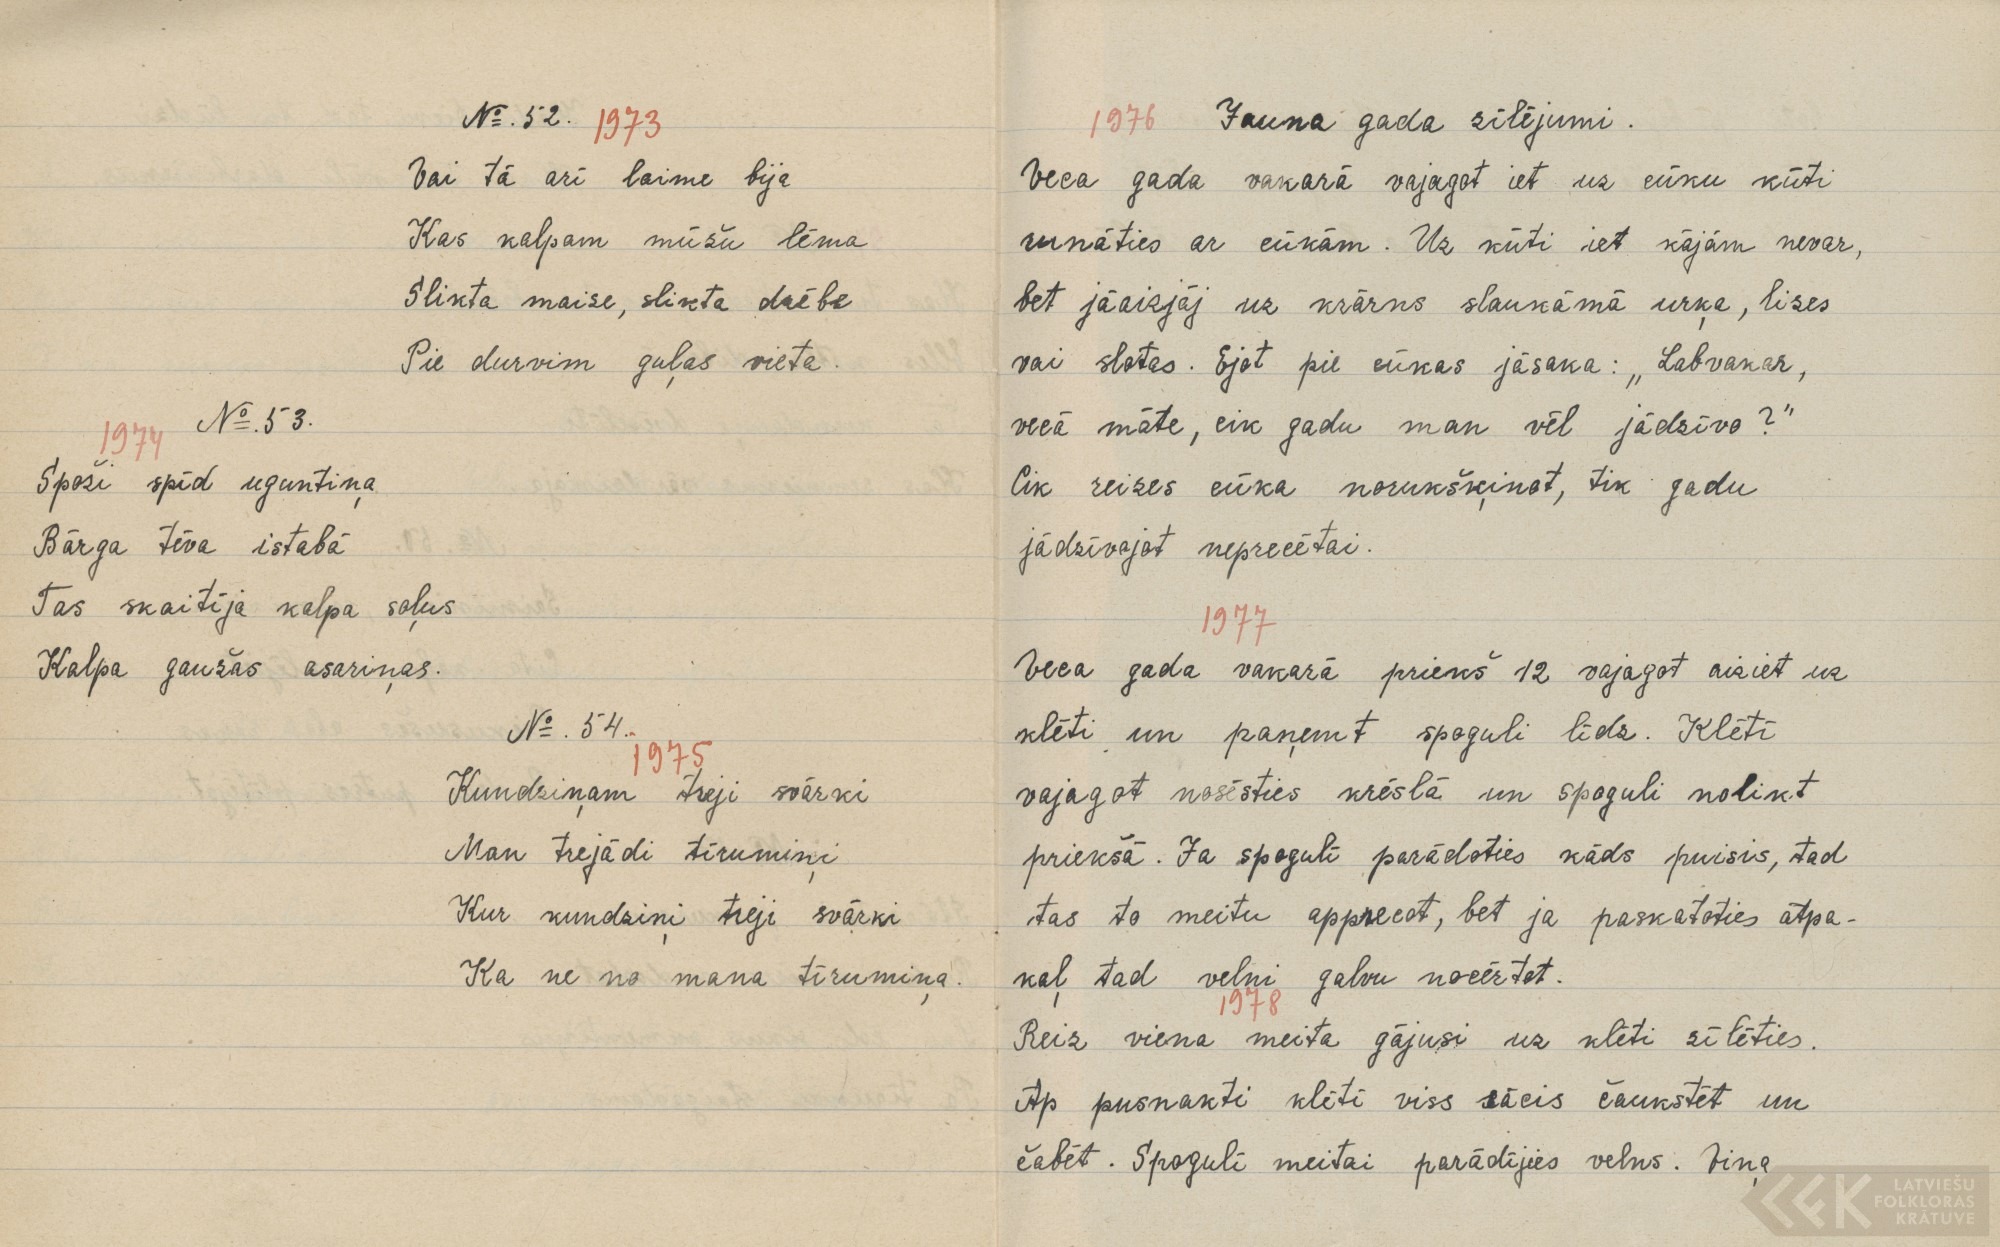 №. 52. 1973
Vai tā arī laime bija
Kas kalpam mūžu lēma
Slikta maize, slikta drēbe
Pie durvim guļas vieta.
1974 №. 53.
Spoži spīd uguntiņa
Bārga tēva istabā
Tas skaitīja kalpa soļus
Kalpa gaužas asariņas.
№. 54.
1975
Kundziņam treji svārki
Man trejādi tīrumiņi
Kur kundziņi treji svārki
Ka ne no mana tīrumiņa.
1976 Jauna gada zīlējumi.
Veca gada vakarā vajagot iet uz cūku kūti
runāties ar cūkām. Uz kūti iet kājām nevar,
bet jāaizjāj uz krāsns slaukāmā urķa, lizes
vai slotas. Ejot pie cūkas jāsaka: „Labvakar,
vecā māte, cik gadu man vēl jādzīvo?"
Cik reizes cūka norukšķinot, tik gadu
jādzīvojot neprecētai.
1977
Veca gada vakarā priekš 12 vajagot aiziet uz
klēti un paņemt spoguli līdz. Klētī
vajagot nosēsties krēslā un spoguli nolikt
priekšā. Ja spogulī parādoties kāds puisis, tad
tas to meitu apprecot, bet ja paskatoties atpa-
kaļ tad velni galvu nocērtot.
1978
Reiz viena meita gājusi uz klēti zīlēties.
Ap pusnakti klētī viss sācis čaukstēt un
čabēt. Spogulī meitai parādījies velns. Viņa
LATVIEŠU
FOLKLORAS
KRĀTUVE